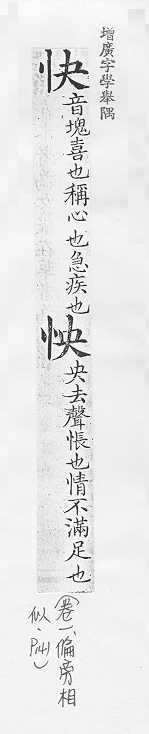 增廣字學舉隅
快音塊喜也稱心也急疾也怏央去聲悵也情不滿足也
(卷一、偏旁相
似、P.41)